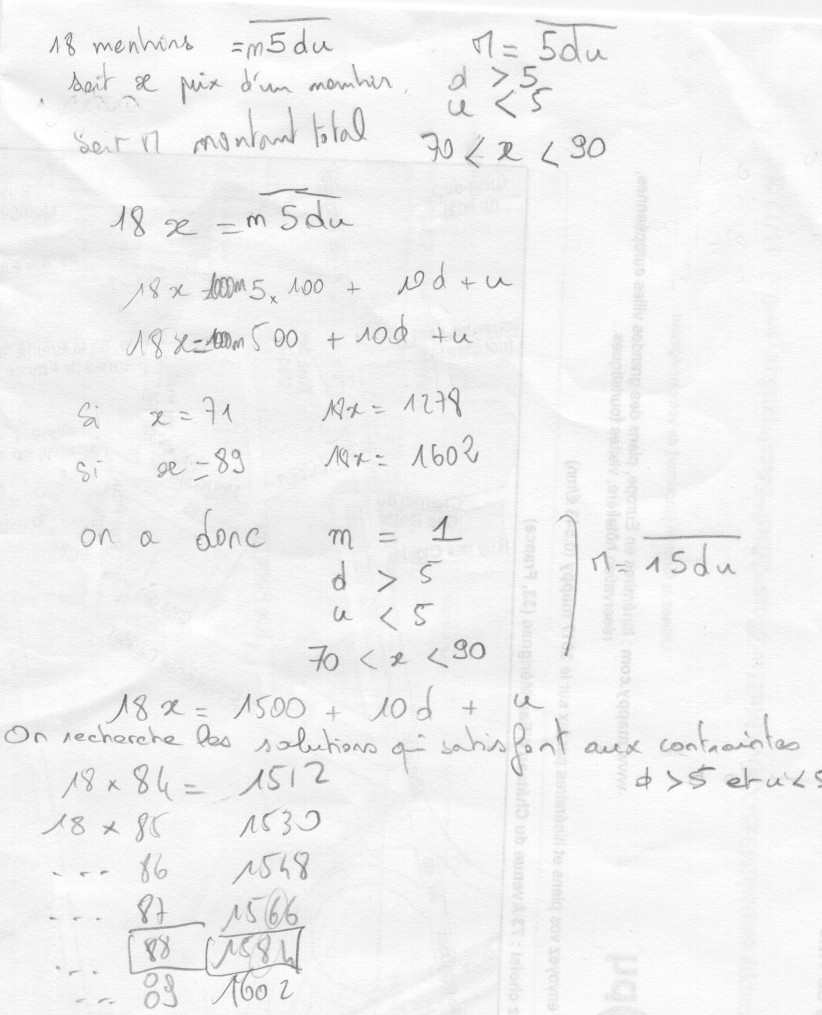 18 menhirs = m5du M = 5du
soit x prix d'un menhir. d > 5
u < 5
soit M montant total 70 < x < 90
18 x = m 5du
18 x = 1000m 5 x 100 + 10d + u
18 x = 1000m 500 + 10d + u
Si x = 71 18x = 1278
Si x = 89 18x = 1602
on a donc m = 1
d > 5 M = 15du
u < 5
70 < x < 90
18 x = 1500 + 10d + u
On recherche les solutions qui satisfont aux contraintes
18 x 84 = 1512 d > 5 et u < 5
18 x 85 1530
... 86 1548
... 87 1566
... 88 1584
... 89 1602